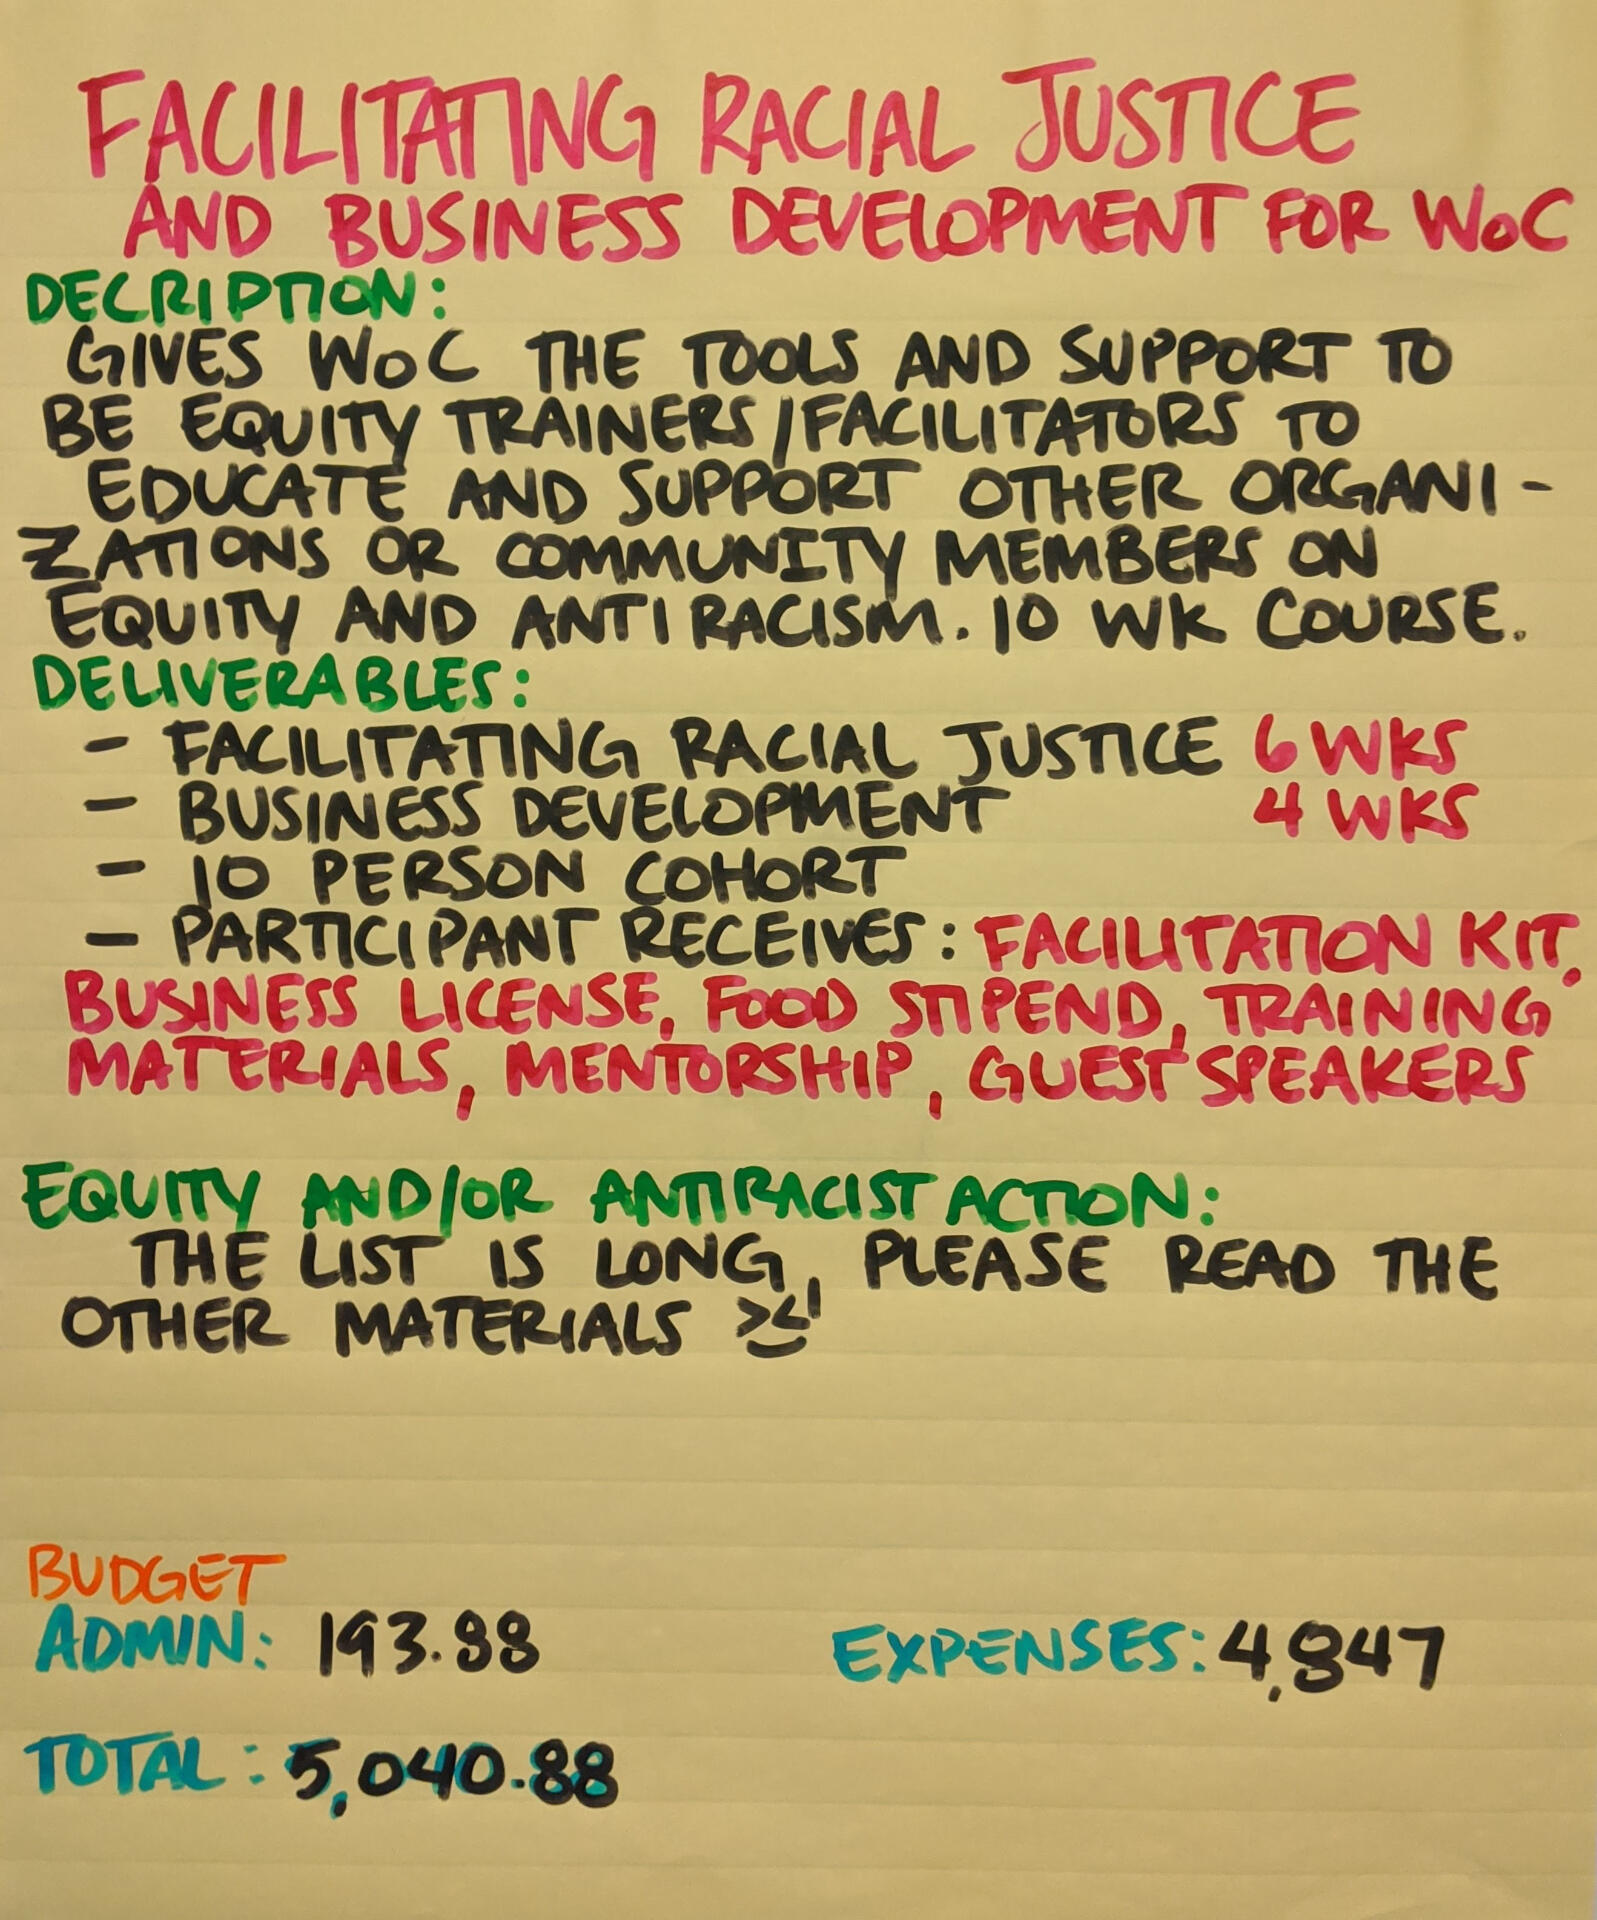 FACILITATING RACIAL JUSTICE
AND BUSINESS DEVELOPMENT FOR WoC
DECRIPTION:
GIVES WoC THE TOOLS AND SUPPORT TO
BE EQUITY TRAINERS/FACILITATORS TO
EDUCATE AND SUPPORT OTHER ORGANI-
ZATIONS OR COMMUNITY MEMBERS ON
EQUITY AND ANTIRACISM. 10 WK COURSE.
DELIVERABLES:
- FACILITATING RACIAL JUSTICE 6 WKS
- BUSINESS DEVELOPMENT 4 WKS
- 10 PERSON COHORT
- PARTICIPANT RECEIVES: FACILITATION KIT,
BUSINESS LICENSE, FOOD STIPEND, TRAINING
MATERIALS, MENTORSHIP, GUEST SPEAKERS
EQUITY AND/OR ANTIRACIST ACTION:
THE LIST IS LONG, PLEASE READ THE
OTHER MATERIALS
BUDGET
ADMIN: 193.88 EXPENSES: 4,847
TOTAL: 5,040.88